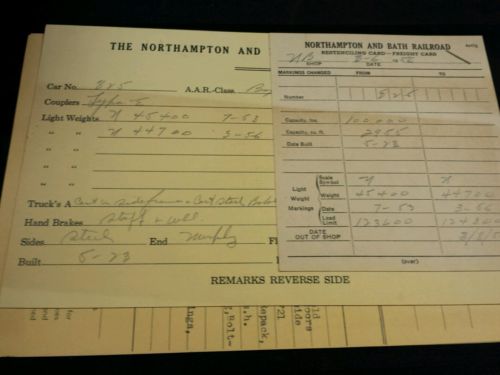 THE NORTHAMPTON AND
Car No. 525 A.A.R.-Class. Box
Couplers Type E
Light Weights N 45400 7-53
" " N 44700 3-56
" "
" "
" "
Truck's A Cast in sideframes - Cast Steel
Hand Brakes Staff & Well.
Sides Steel End Murphy Fl
Built 5-23
REMARKS REVERSE SIDE
NORTHAMPTON AND BATH RAILROAD
RESTENCILING CARD—FREIGHT CARD
NB SHOP 3-6 1956 DATE
MARKINGS CHANGED FROM TO
Number 525
Capacity, lbs. 100,000
Capacity, cu. ft. 2955
Date Built 5-23
Light Weight Markings
Scale Symbol N N
Weight 45400 44700
Date 7-53 3-56
Load Limit 123600
DATE OUT OF SHOP
(over)
for
ings,
,Bolt-
.h.
Repack,
721
side
oors
ld